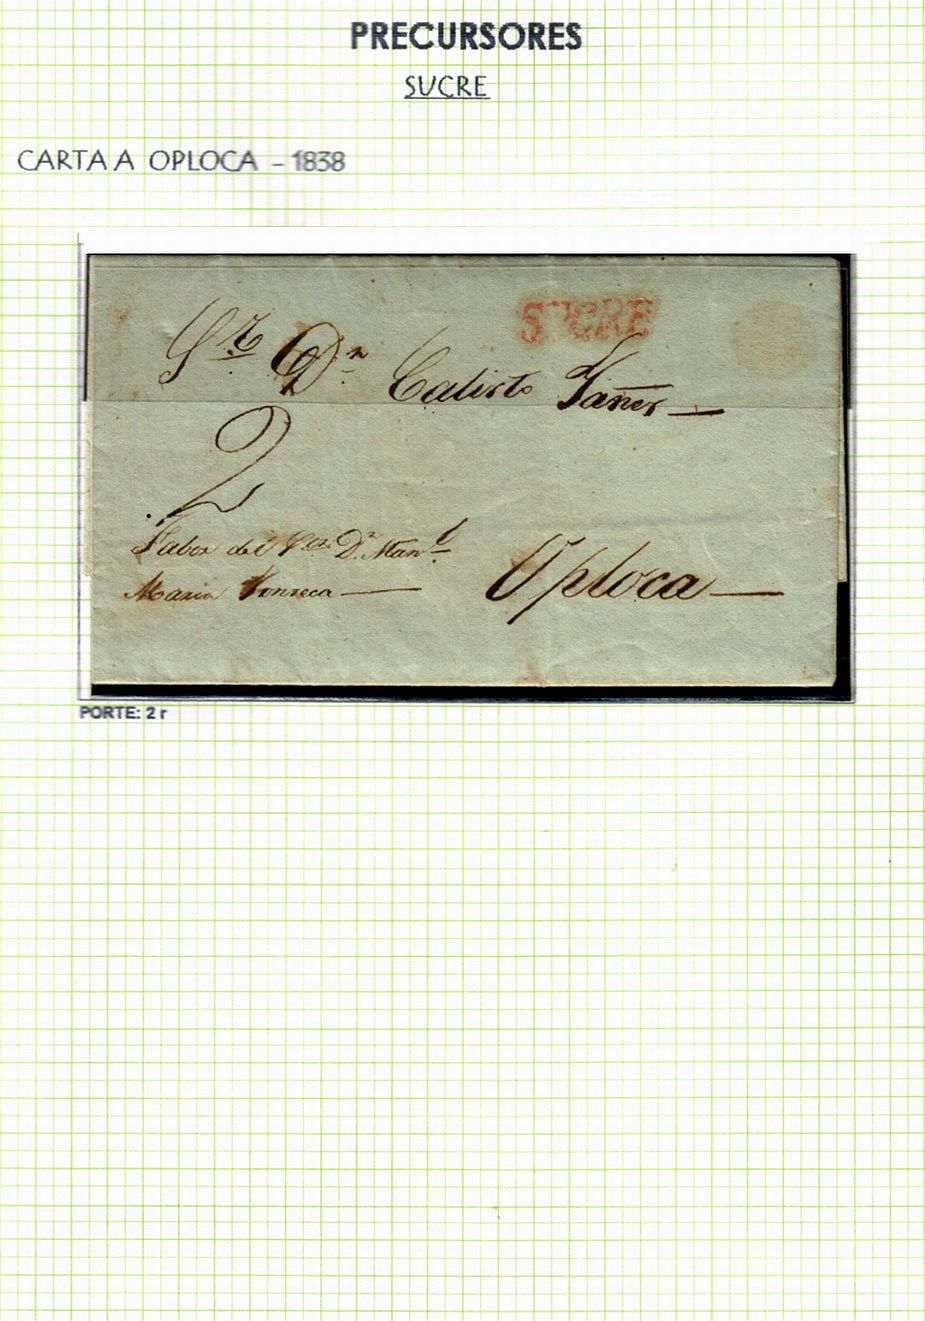 PRECURSORES
SUCRE
CARTA A OPLOCA - 1838
SUCRE
Sr. Dn. Calisto Yañes
2
Fabor del Sor. Dn. Manl.
Maria Fonseca
Oploca
PORTE: 2 r